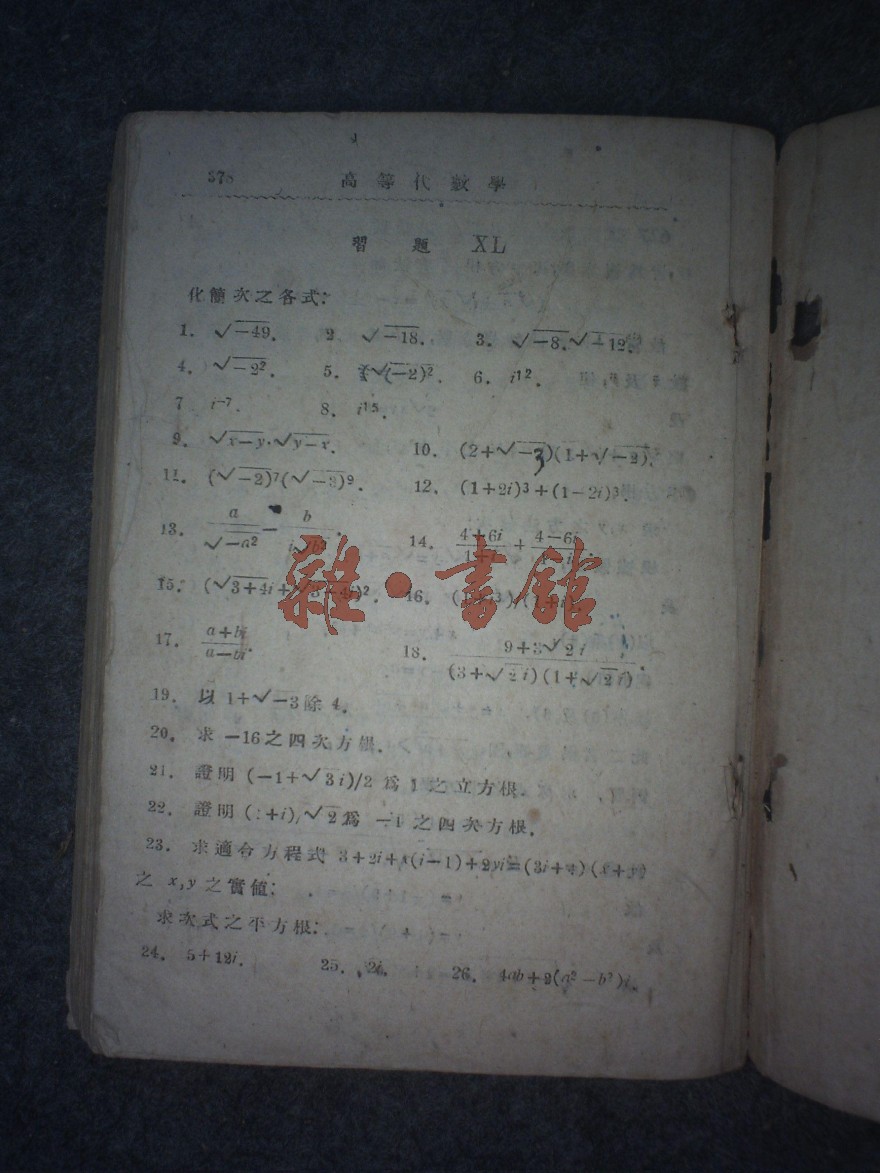 378 高等代數學
習題 XL
化簡次之各式:
1. √-49. 2. √-18. 3. √-8.√-12.
4. √-2². 5. √(-2)². 6. i¹².
7 i⁻⁷. 8. i¹⁵.
9. √x-y·√y-x. 10. (2+√-3)(1+√-2).
11. (√-2)⁷(√-3)⁹. 12. (1+2i)³+(1-2i)³.
13. a/√-a² - b/ 14. 4+6i/ + 4-6i/
15. (√3+4i+ )². 16.
17. a+bi/a-bi. 18. 9+3√2i/(3+√2i)(1+√2i).
19. 以 1+√-3 除 4.
20. 求 -16 之四次方根.
21. 證明 (-1+√3i)/2 爲 1 之立方根.
22. 證明 (:+i)/√2 爲 -1 之四次方根.
23. 求適合方程式 3+2i+x(i-1)+2yi=(3i+4)(x+y)
之 x,y 之實値:
求次式之平方根:
24. 5+12i. 25. 2i. 26. 4ab+2(a²-b²)i.
雜·書館